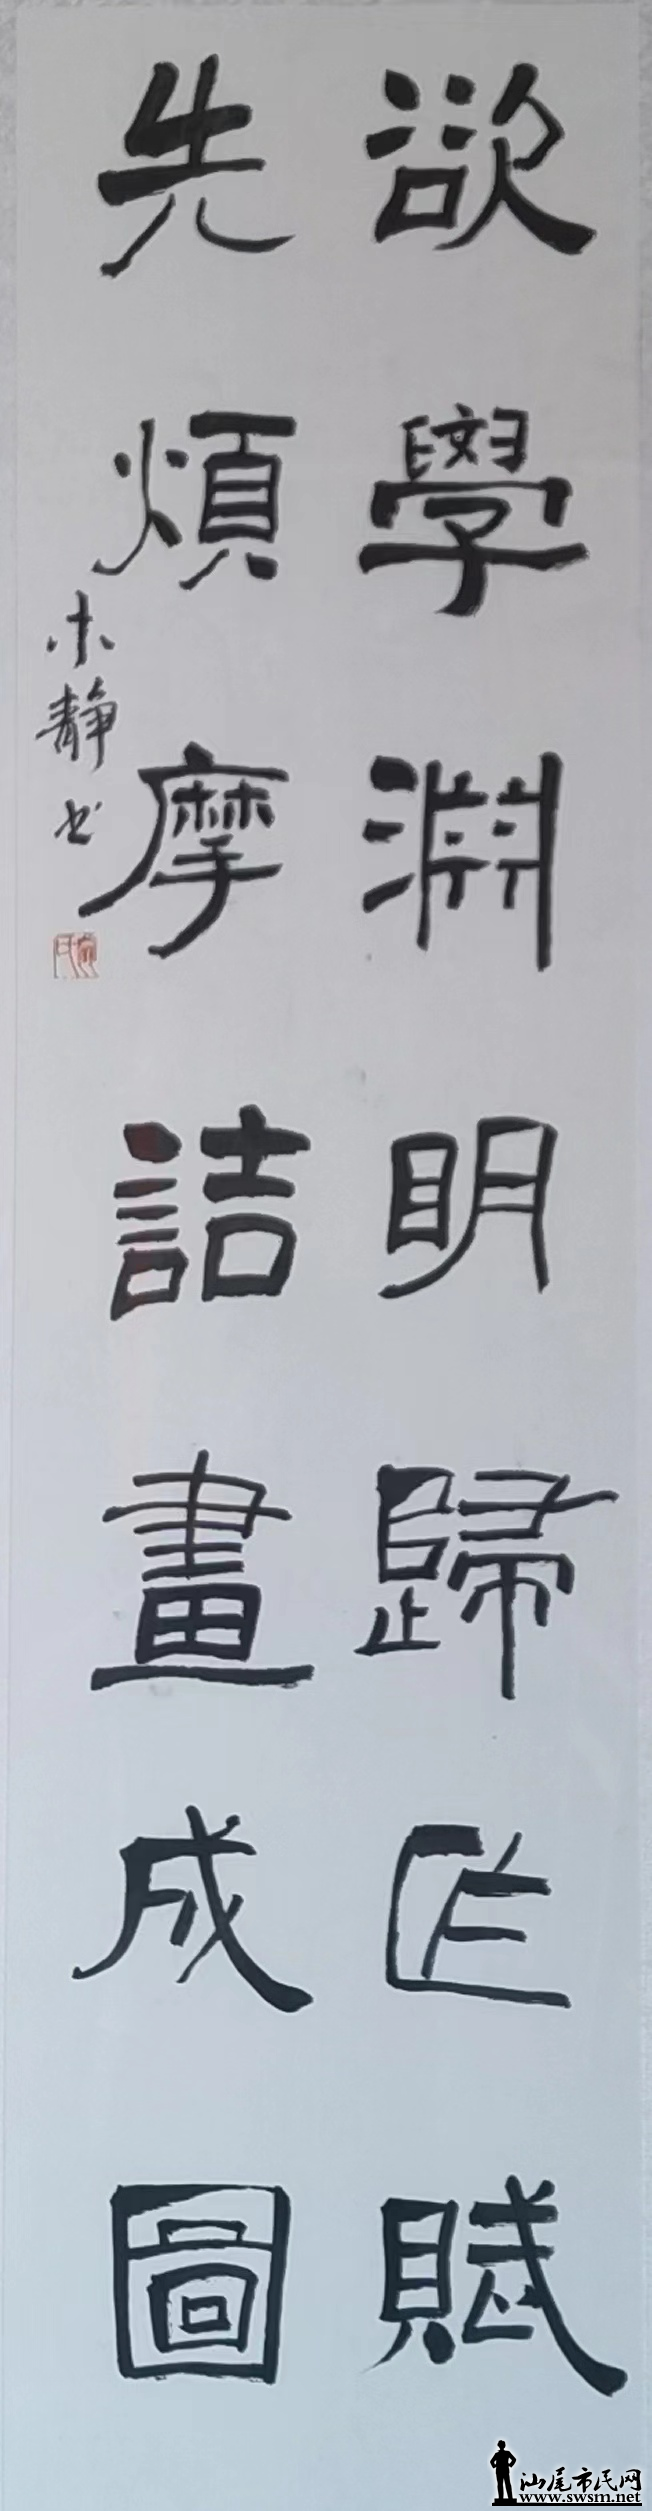 欲學淵明歸作賦
先煩摩詰畫成圖
木靜书
汕尾市民网
www.swsm.net